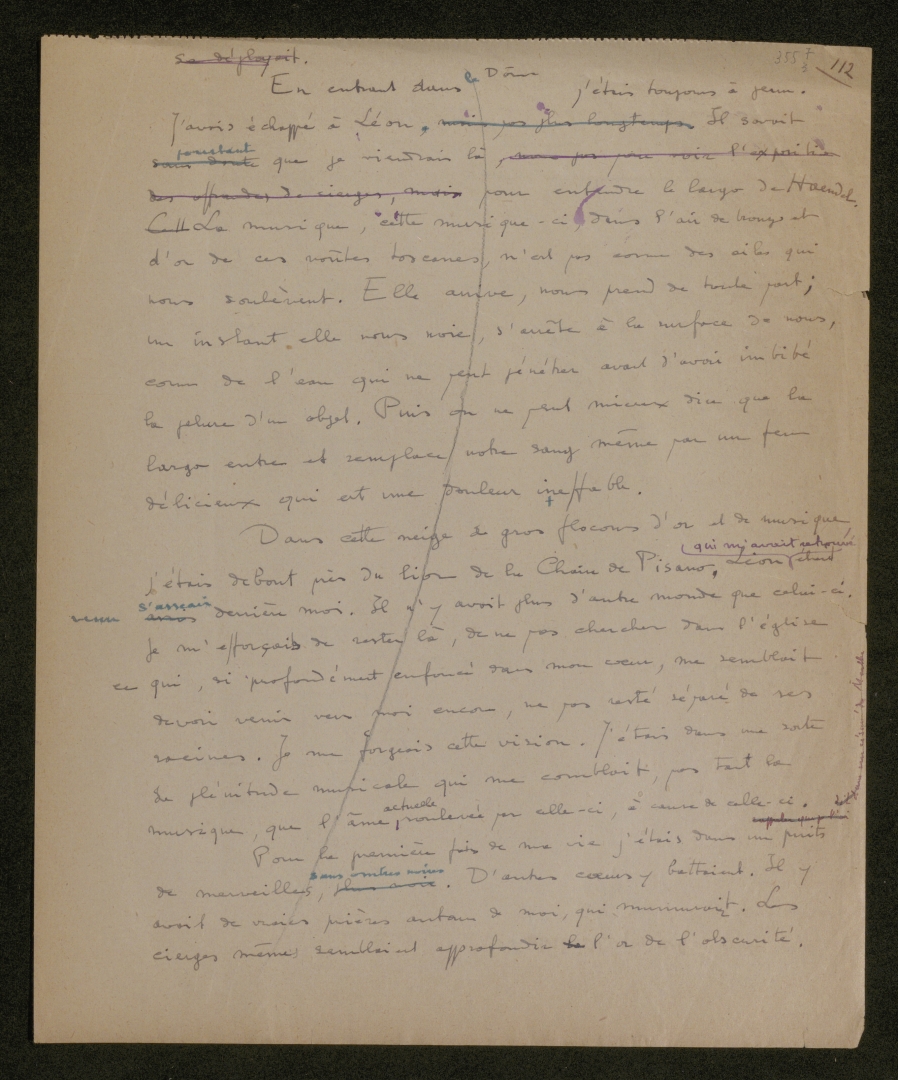 355 7/3 112
se déployait.
En entrant dans le Dôme j'étais toujours à jeun.
J'avais échappé à Léon, mais pas plus longtemps. Il savait
pourtant
sans doute que je viendrais là, non pas pour voir l'exposition
des offrandes de cierges, mais pour entendre le largo de Haendel.
Cett La musique, cette musique-ci, dans l'air de bronze et
d'or de ces voûtes toscanes, n'est pas comme des ailes qui
nous soulèvent. Elle arrive, nous prend de toute part;
un instant elle nous noie, s'arrête à la surface de nous,
comme de l'eau qui ne peut pénétrer avant d'avoir imbibé
la pelure d'un objet. Puis on ne peut mieux dire que le
largo entre et remplace notre sang même par un feu
délicieux qui est une douleur ineffable.
Dans cette neige de gros flocons d'or et de musique
qui m'avait retrouvé
j'étais debout près du lion de la Chaire de Pisano, Léon était
venu s'asseoir
assis derrière moi. Il n'y avait plus d'autre monde que celui-ci.
Je m'efforçais de rester là, de ne pas chercher dans l'église
ce qui, si profondément enfoncé dans mon cœur, me semblait
devoir venir vers moi encore, ne pas resté séparé de ses
racines. Je me forgeais cette vision. J'étais dans une sorte
de plénitude musicale qui me comblait, pas tant la
actuelle
musique, que l'âme soulevée par elle-ci, à cause de celle-ci.
Pour la première fois de ma vie j'étais dans un puits
sans ombres noires
de merveilles, plus noir. D'autres cœurs y battaient. Il y
avait de vraies prières autour de moi, qui murmuraient. Les
cierges mêmes semblaient approfondir le l'or de l'obscurité.